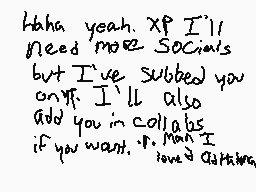 haha yeah. XP I'll
need more socials
but I've subbed you
on yt. I'll also
add you in collabs
if you want. Man I
loved